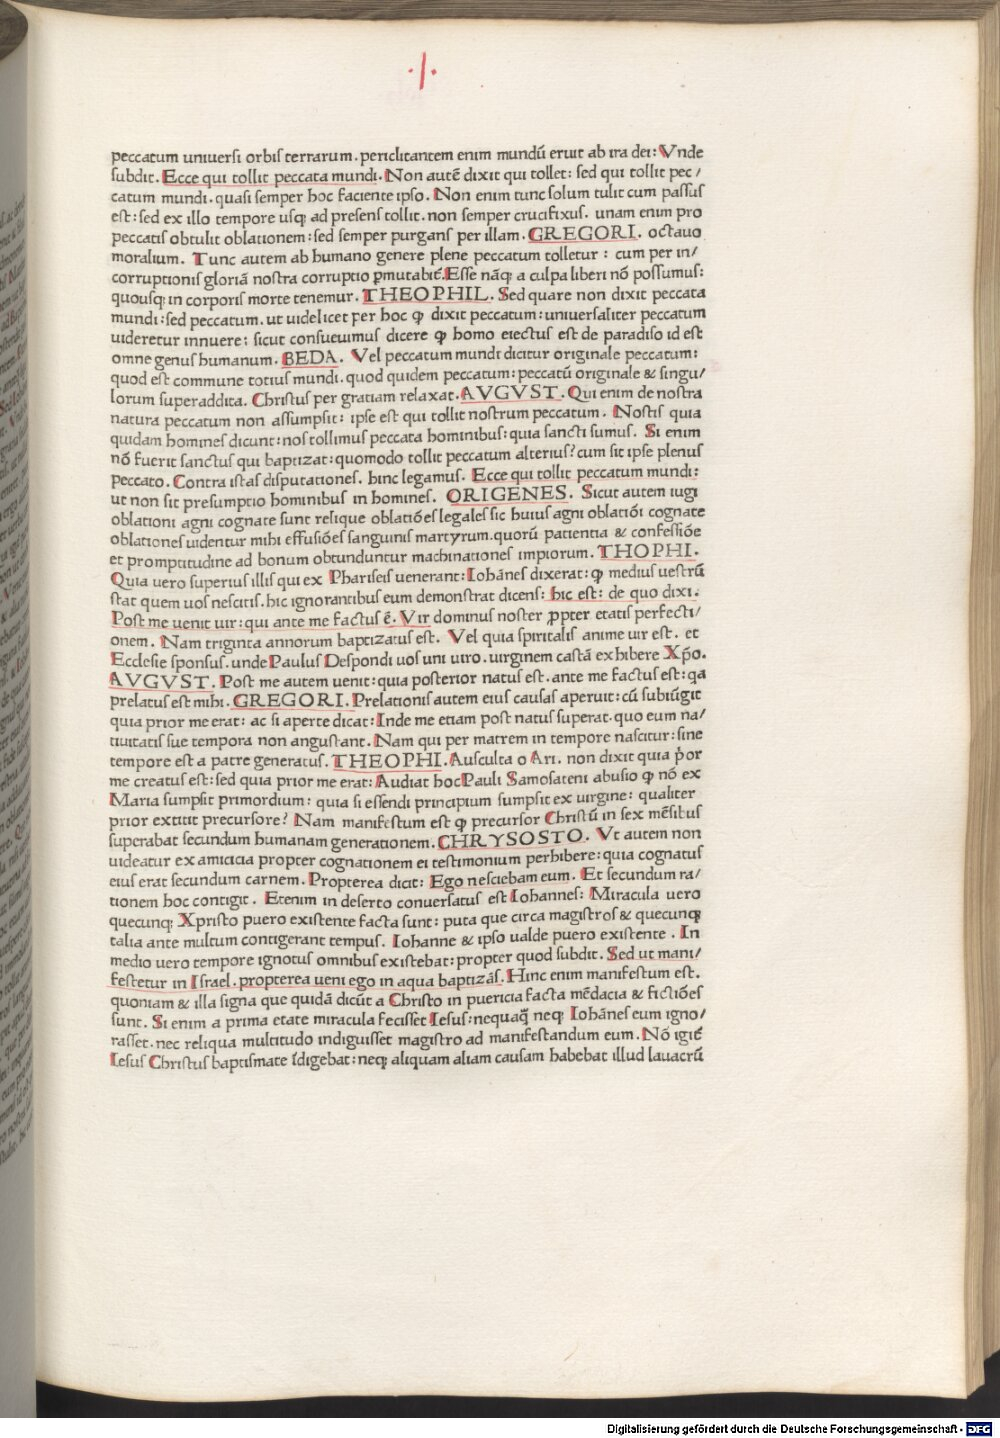 ·I·
peccatum uniuersi orbis terrarum. periclitantem enim mundũ eruit ab ira dei: Vnde
subdit. Ecce qui tollit peccata mundi. Non autẽ dixit qui tollet: sed qui tollit pec/
catum mundi. quasi semper hoc faciente ipso. Non enim tunc solum tulit cum passus
est: sed ex illo tempore usq; ad presens tollit. non semper crucifixus. unam enim pro
peccatis obtulit oblationem: sed semper purgans per illam. GREGORI. octauo
moralium. Tunc autem ab humano genere plene peccatum tolletur: cum per in/
corruptionis gloriã nostra corruptio ꝑmutabiẽ. Esse nãq; a culpa liberi nõ possumus:
quousq; in corporis morte tenemur. THEOPHIL. Sed quare non dixit peccata
mundi: sed peccatum. ut uidelicet per hoc ꝙ dixit peccatum: uniuersaliter peccatum
uideretur innuere: sicut consueuimus dicere ꝙ homo eiectus est de paradiso id est
omne genus humanum. BEDA. Vel peccatum mundi dicitur originale peccatum:
quod est commune totius mundi. quod quidem peccatum: peccatũ originale & singu/
lorum superaddita. Christus per gratiam relaxat. AVGVST. Qui enim de nostra
natura peccatum non assumpsit: ipse est qui tollit nostrum peccatum. Nostis quia
quidam homines dicunt: nos tollimus peccata hominibus: quia sancti sumus. Si enim
nõ fuerit sanctus qui baptizat: quomodo tollit peccatum alterius? cum sit ipse plenus
peccato. Contra istas disputationes. hinc legamus. Ecce qui tollit peccatum mundi:
ut non sit presumptio hominibus in homines. ORIGENES. Sicut autem iugi
oblationi agni cognate sunt relique oblatiões legales sic huius agni oblatiõi cognate
oblationes uidentur mihi effusiões sanguinis martyrum. quorũ patientia & confessiõe
et promptitudine ad bonum obtunduntur machinationes impiorum. THOPHI.
Quia uero superius illis qui ex Phariseis uenerant: Iohãnes dixerat: ꝙ medius uestrũ
stat quem uos nescitis. hic ignorantibus eum demonstrat dicens: hic est: de quo dixi.
Post me uenit uir: qui ante me factus ẽ. Vir dominus noster ꝓpter etatis perfecti/
onem. Nam triginta annorum baptizatus est. Vel quia spiritalis anime uir est. et
Ecclesie sponsus. unde Paulus Despondi uos uni uiro. uirginem castã exhibere Xp̃o.
AVGVST. Post me autem uenit: quia posterior natus est. ante me factus est: q̃a
prelatus est mihi. GREGORI. Prelationis autem eius causas aperuit: cũ subiũgit
quia prior me erat: ac si aperte dicat: Inde me etiam post natus superat. quo eum na/
tiuitatis sue tempora non angustant. Nam qui per matrem in tempore nascitur: sine
tempore est a patre generatus. THEOPHI. Ausculta o Ari. non dixit quia p̃or
me creatus est: sed quia prior me erat: Audiat hoc Pauli Samosateni abusio ꝙ nõ ex
Maria sumpsit primordium: quia si essendi principium sumpsit ex uirgine: qualiter
prior extitit precursore? Nam manifestum est ꝙ precursor Christũ in sex mẽsibus
superabat secundum humanam generationem. CHRYSOSTO. Vt autem non
uideatur ex amicicia propter cognationem ei testimonium perhibere: quia cognatus
eius erat secundum carnem. Propterea dicit: Ego nesciebam eum. Et secundum ra/
tionem hoc contigit. Etenim in deserto conuersatus est Iohannes: Miracula uero
quecunq; Xpristo puero existente facta sunt: puta que circa magistros & quecunq;
talia ante multum contigerant tempus. Iohanne & ipso ualde puero existente. In
medio uero tempore ignotus omnibus existebat: propter quod subdit. Sed ut mani/
festetur in Israel. propterea ueni ego in aqua baptizãs. Hinc enim manifestum est.
quoniam & illa signa que quidã dicũt a Christo in puericia facta mẽdacia & fictiões
sunt. Si enim a prima etate miracula fecisset Iesus: nequaq̃ neq; Iohãnes eum igno/
rasset. nec reliqua multitudo indiguisset magistro ad manifestandum eum. Nõ igiẽ
Iesus Christus baptismate ĩdigebat: neq; aliquam aliam causam habebat illud lauacrũ
Digitalisierung gefördert durch die Deutsche Forschungsgemeinschaft - DFG